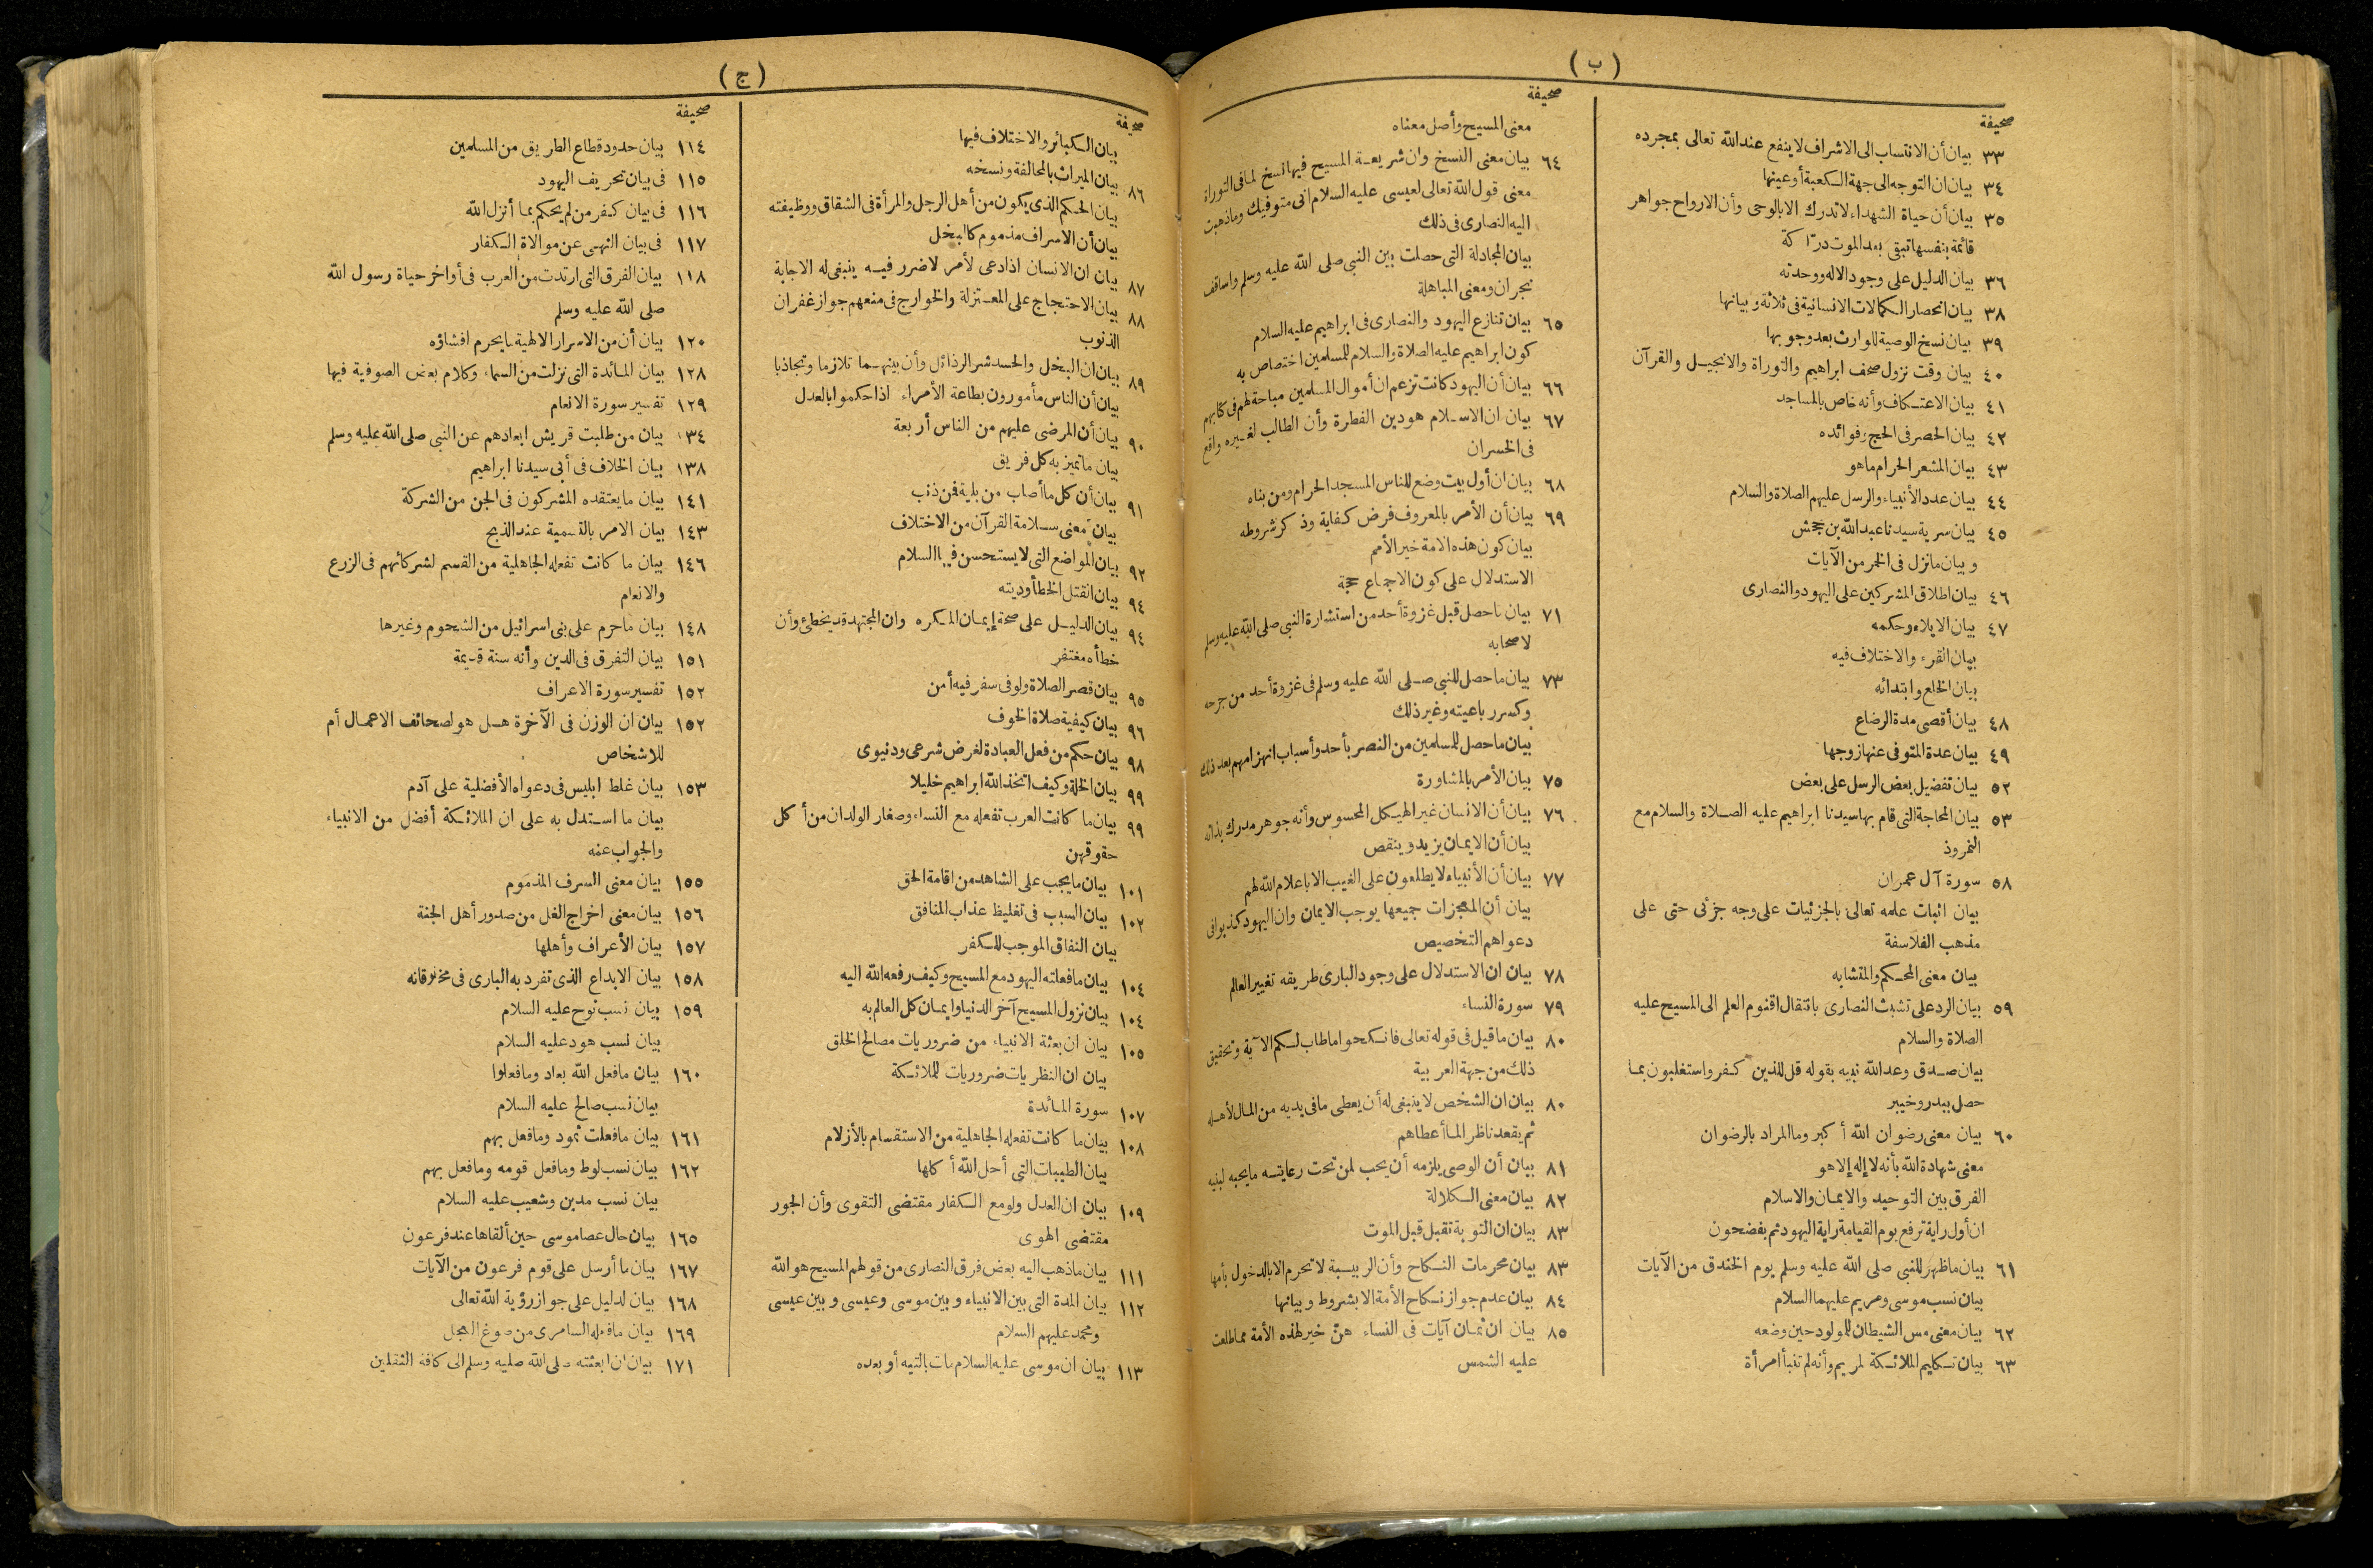 (ب)
صحيفة
٣٣ بيان أن الانتساب الى الاشراف لا ينفع عند الله تعالى بمجرده
٣٤ بيان ان التوجه الى جهة الكعبة أو عينها
٣٥ بيان أن حياة الشهداء لا تدرك الا بالوحى وأن الارواح جواهر
قائمة بنفسها تبقى بعد الموت درّاكة
٣٦ بيان الدليل على وجود الاله ووحدته
٣٨ بيان انحصار الكمالات الانسانية فى ثلاثة وبيانها
٣٩ بيان نسخ الوصية للوارث بعد وجوبها
٤٠ بيان وقت نزول صحف ابراهيم والتوراة والانجيل والقرآن
٤١ بيان الاعتكاف وأنه خاص بالمساجد
٤٢ بيان الحصر فى الحج وفوائده
٤٣ بيان المشعر الحرام ما هو
٤٤ بيان عدد الأنبياء والرسل عليهم الصلاة والسلام
٤٥ بيان سرية سيدنا عبد الله بن جحش
وبيان ما نزل فى الخمر من الآيات
٤٦ بيان اطلاق المشركين على اليهود والنصارى
٤٧ بيان الايلاء وحكمه
بيان القرء والاختلاف فيه
بيان الخلع وابتدائه
٤٨ بيان أقصى مدة الرضاع
٤٩ بيان عدة المتوفى عنها زوجها
٥٢ بيان تفضيل بعض الرسل على بعض
٥٣ بيان المحاجة التى قام بها سيدنا ابراهيم عليه الصلاة والسلام مع
النمروذ
٥٨ سورة آل عمران
بيان اثبات علمه تعالى بالجزئيات على وجه جزئى حتى على
مذهب الفلاسفة
بيان معنى المحكم والمتشابه
٥٩ بيان الرد على تشبث النصارى بانتقال اقنوم العلم الى المسيح عليه
الصلاة والسلام
بيان صدق وعد الله نبيه بقوله قل للذين كفروا ستغلبون بما
حصل ببدر وخيبر
٦٠ بيان معنى رضوان الله أكبر وما المراد بالرضوان
معنى شهادة الله بأنه لا إله إلا هو
الفرق بين التوحيد والايمان والاسلام
ان أول راية ترفع يوم القيامة راية اليهود ثم يفضحون
٦١ بيان ما ظهر للنبى صلى الله عليه وسلم يوم الخندق من الآيات
بيان نسب موسى ومريم عليهما السلام
٦٢ بيان معنى مس الشيطان للمولود حين وضعه
٦٣ بيان تكليم الملائكة لمريم وأنه لم تنبأ امرأة
صحيفة
معنى المسيح وأصل معناه
٦٤ بيان معنى النسخ وان شريعة المسيح فيها نسخ لما فى التوراة
معنى قول الله تعالى لعيسى عليه السلام انى متوفيك وما ذهبت
اليه النصارى فى ذلك
بيان المجادلة التى حصلت بين النبى صلى الله عليه وسلم واساقف
نجران ومعنى المباهلة
٦٥ بيان تنازع اليهود والنصارى فى ابراهيم عليه السلام
كون ابراهيم عليه الصلاة والسلام للمسلمين اختصاص به
٦٦ بيان أن اليهود كانت تزعم ان أموال المسلمين مباحة لهم فى كتابهم
٦٧ بيان ان الاسلام هو دين الفطرة وأن الطالب لغيره واقع
فى الخسران
٦٨ بيان ان أول بيت وضع للناس المسجد الحرام ومن بناه
٦٩ بيان أن الأمر بالمعروف فرض كفاية وذكر شروطه
بيان كون هذه الامة خير الأمم
الاستدلال على كون الاجماع حجة
٧١ بيان ما حصل قبل غزوة أحد من استشارة النبى صلى الله عليه وسلم
لاصحابه
٧٣ بيان ما حصل للنبى صلى الله عليه وسلم فى غزوة أحد من جرحه
وكسر رباعيته وغير ذلك
بيان ما حصل للمسلمين من النصر بأحد وأسباب انهزامهم بعد ذلك
٧٥ بيان الأمر بالمشاورة
٧٦ بيان أن الانسان غير الهيكل المحسوس وأنه جوهر مدرك بذاته
بيان أن الايمان يزيد وينقص
٧٧ بيان أن الأنبياء لا يطلعون على الغيب الا باعلام الله لهم
بيان أن المعجزات جميعها يوجب الايمان وان اليهود كذبوا فى
دعواهم التخصيص
٧٨ بيان ان الاستدلال على وجود البارى طريقه تغيير العالم
٧٩ سورة النساء
٨٠ بيان ما قيل فى قوله تعالى فانكحوا ما طاب لكم الآية وتحقيق
ذلك من جهة العربية
٨٠ بيان ان الشخص لا ينبغى له أن يعطى ما فى يديه من المال لأهله
ثم يقعد ناظر الما أعطاهم
٨١ بيان أن الوصى يلزمه أن يحب لمن تحت رعايته ما يحبه لبنيه
٨٢ بيان معنى الكلالة
٨٣ بيان ان التوبة تقبل قبل الموت
٨٣ بيان محرمات النكاح وأن الربيبة لا تحرم الا بالدخول بأمها
٨٤ بيان عدم جواز نكاح الأمة الا بشروط وبيانها
٨٥ بيان ان ثمان آيات فى النساء هنّ خير لهذه الأمة مما طلعت
عليه الشمس
(ج)
صحيفة
بيان الكبائر والاختلاف فيها
٨٦ بيان الميراث بالمحالفة ونسخه
بيان الحكم الذى يكون من أهل الرجل والمرأة فى الشقاق ووظيفته
بيان أن الاسراف مذموم كالبخل
٨٧ بيان ان الانسان اذا دعى لأمر لا ضرر فيه ينبغى له الاجابة
٨٨ بيان الاحتجاج على المعتزلة والخوارج فى منعهم جواز غفران
الذنوب
٨٩ بيان ان البخل والحسد شر الرذائل وأن بينهما تلازما وتجاذبا
بيان أن الناس مأمورون بطاعة الأمراء اذا حكموا بالعدل
٩٠ بيان أن المرضى عليهم من الناس أربعة
بيان ما تميز به كل فريق
٩١ بيان أن كل ما أصاب من بلية فمن ذنب
بيان معنى سلامة القرآن من الاختلاف
٩٢ بيان المواضع التى لا يستحسن فيها السلام
٩٤ بيان القتل الخطأ وديته
٩٤ بيان الدليل على صحة إيمان المكره وان المجتهد قد يخطئ وأن
خطأه مغتفر
٩٥ بيان قصر الصلاة ولو فى سفر فيه أمن
٩٦ بيان كيفية صلاة الخوف
٩٨ بيان حكم من فعل العبادة لغرض شرعى ودنيوى
٩٩ بيان الخلة وكيف اتخذ الله ابراهيم خليلا
٩٩ بيان ما كانت العرب تفعله مع النساء وصغار الولدان من أكل
حقوقهن
١٠١ بيان ما يجب على الشاهد من اقامة الحق
١٠٢ بيان السبب فى تغليظ عذاب المنافق
بيان النفاق الموجب للكفر
١٠٤ بيان ما فعلته اليهود مع المسيح وكيف رفعه الله اليه
١٠٤ بيان نزول المسيح آخر الدنيا وايمان كل العالم به
١٠٥ بيان ان بعثة الانبياء من ضروريات مصالح الخلق
بيان ان النظريات ضروريات للملائكة
١٠٧ سورة المائدة
١٠٨ بيان ما كانت تفعله الجاهلية من الاستقسام بالأزلام
بيان الطيبات التى أحل الله أكلها
١٠٩ بيان ان العدل ولو مع الكفار مقتضى التقوى وأن الجور
مقتضى الهوى
١١١ بيان ما ذهب اليه بعض فرق النصارى من قولهم المسيح هو الله
١١٢ بيان المدة التى بين الانبياء وبين موسى وعيسى وبين عيسى
ومحمد عليهم السلام
١١٣ بيان ان موسى عليه السلام مات بالتيه أو بعده
صحيفة
١١٤ بيان حدود قطاع الطريق من المسلمين
١١٥ فى بيان تحريف اليهود
١١٦ فى بيان كفر من لم يحكم بما أنزل الله
١١٧ فى بيان النهى عن موالاة الكفار
١١٨ بيان الفرق التى ارتدت من العرب فى أواخر حياة رسول الله
صلى الله عليه وسلم
١٢٠ بيان أن من الاسرار الالهية ما يحرم افشاؤه
١٢٨ بيان المائدة التى نزلت من السماء وكلام بعض الصوفية فيها
١٢٩ تفسير سورة الانعام
١٣٤ بيان من طلبت قريش ابعادهم عن النبى صلى الله عليه وسلم
١٣٨ بيان الخلاف فى أبى سيدنا ابراهيم
١٤١ بيان ما يعتقده المشركون فى الجن من الشركة
١٤٣ بيان الامر بالتسمية عند الذبح
١٤٦ بيان ما كانت تفعله الجاهلية من القسم لشركائهم فى الزرع
والانعام
١٤٨ بيان ما حرم على بنى اسرائيل من الشحوم وغيرها
١٥١ بيان التفرق فى الدين وأنه سنة قديمة
١٥٢ تفسير سورة الاعراف
١٥٢ بيان ان الوزن فى الآخرة هل هو لصحائف الاعمال أم
للاشخاص
١٥٣ بيان غلط ابليس فى دعواه الأفضلية على آدم
بيان ما استدل به على ان الملائكة أفضل من الانبياء
والجواب عنه
١٥٥ بيان معنى السرف المذموم
١٥٦ بيان معنى اخراج الغل من صدور أهل الجنة
١٥٧ بيان الأعراف وأهلها
١٥٨ بيان الابداع الذى تفرد به البارى فى مخلوقاته
١٥٩ بيان نسب نوح عليه السلام
بيان نسب هود عليه السلام
١٦٠ بيان ما فعل الله بعاد وما فعلوا
بيان نسب صالح عليه السلام
١٦١ بيان ما فعلت ثمود وما فعل بهم
١٦٢ بيان نسب لوط وما فعل قومه وما فعل بهم
بيان نسب مدين وشعيب عليه السلام
١٦٥ بيان حال عصا موسى حين ألقاها عند فرعون
١٦٧ بيان ما أرسل على قوم فرعون من الآيات
١٦٨ بيان لدليل على جواز رؤية الله تعالى
١٦٩ بيان ما فعله السامرى من صوغ العجل
١٧١ بيان ان بعثته صلى الله عليه وسلم الى كافة الثقلين